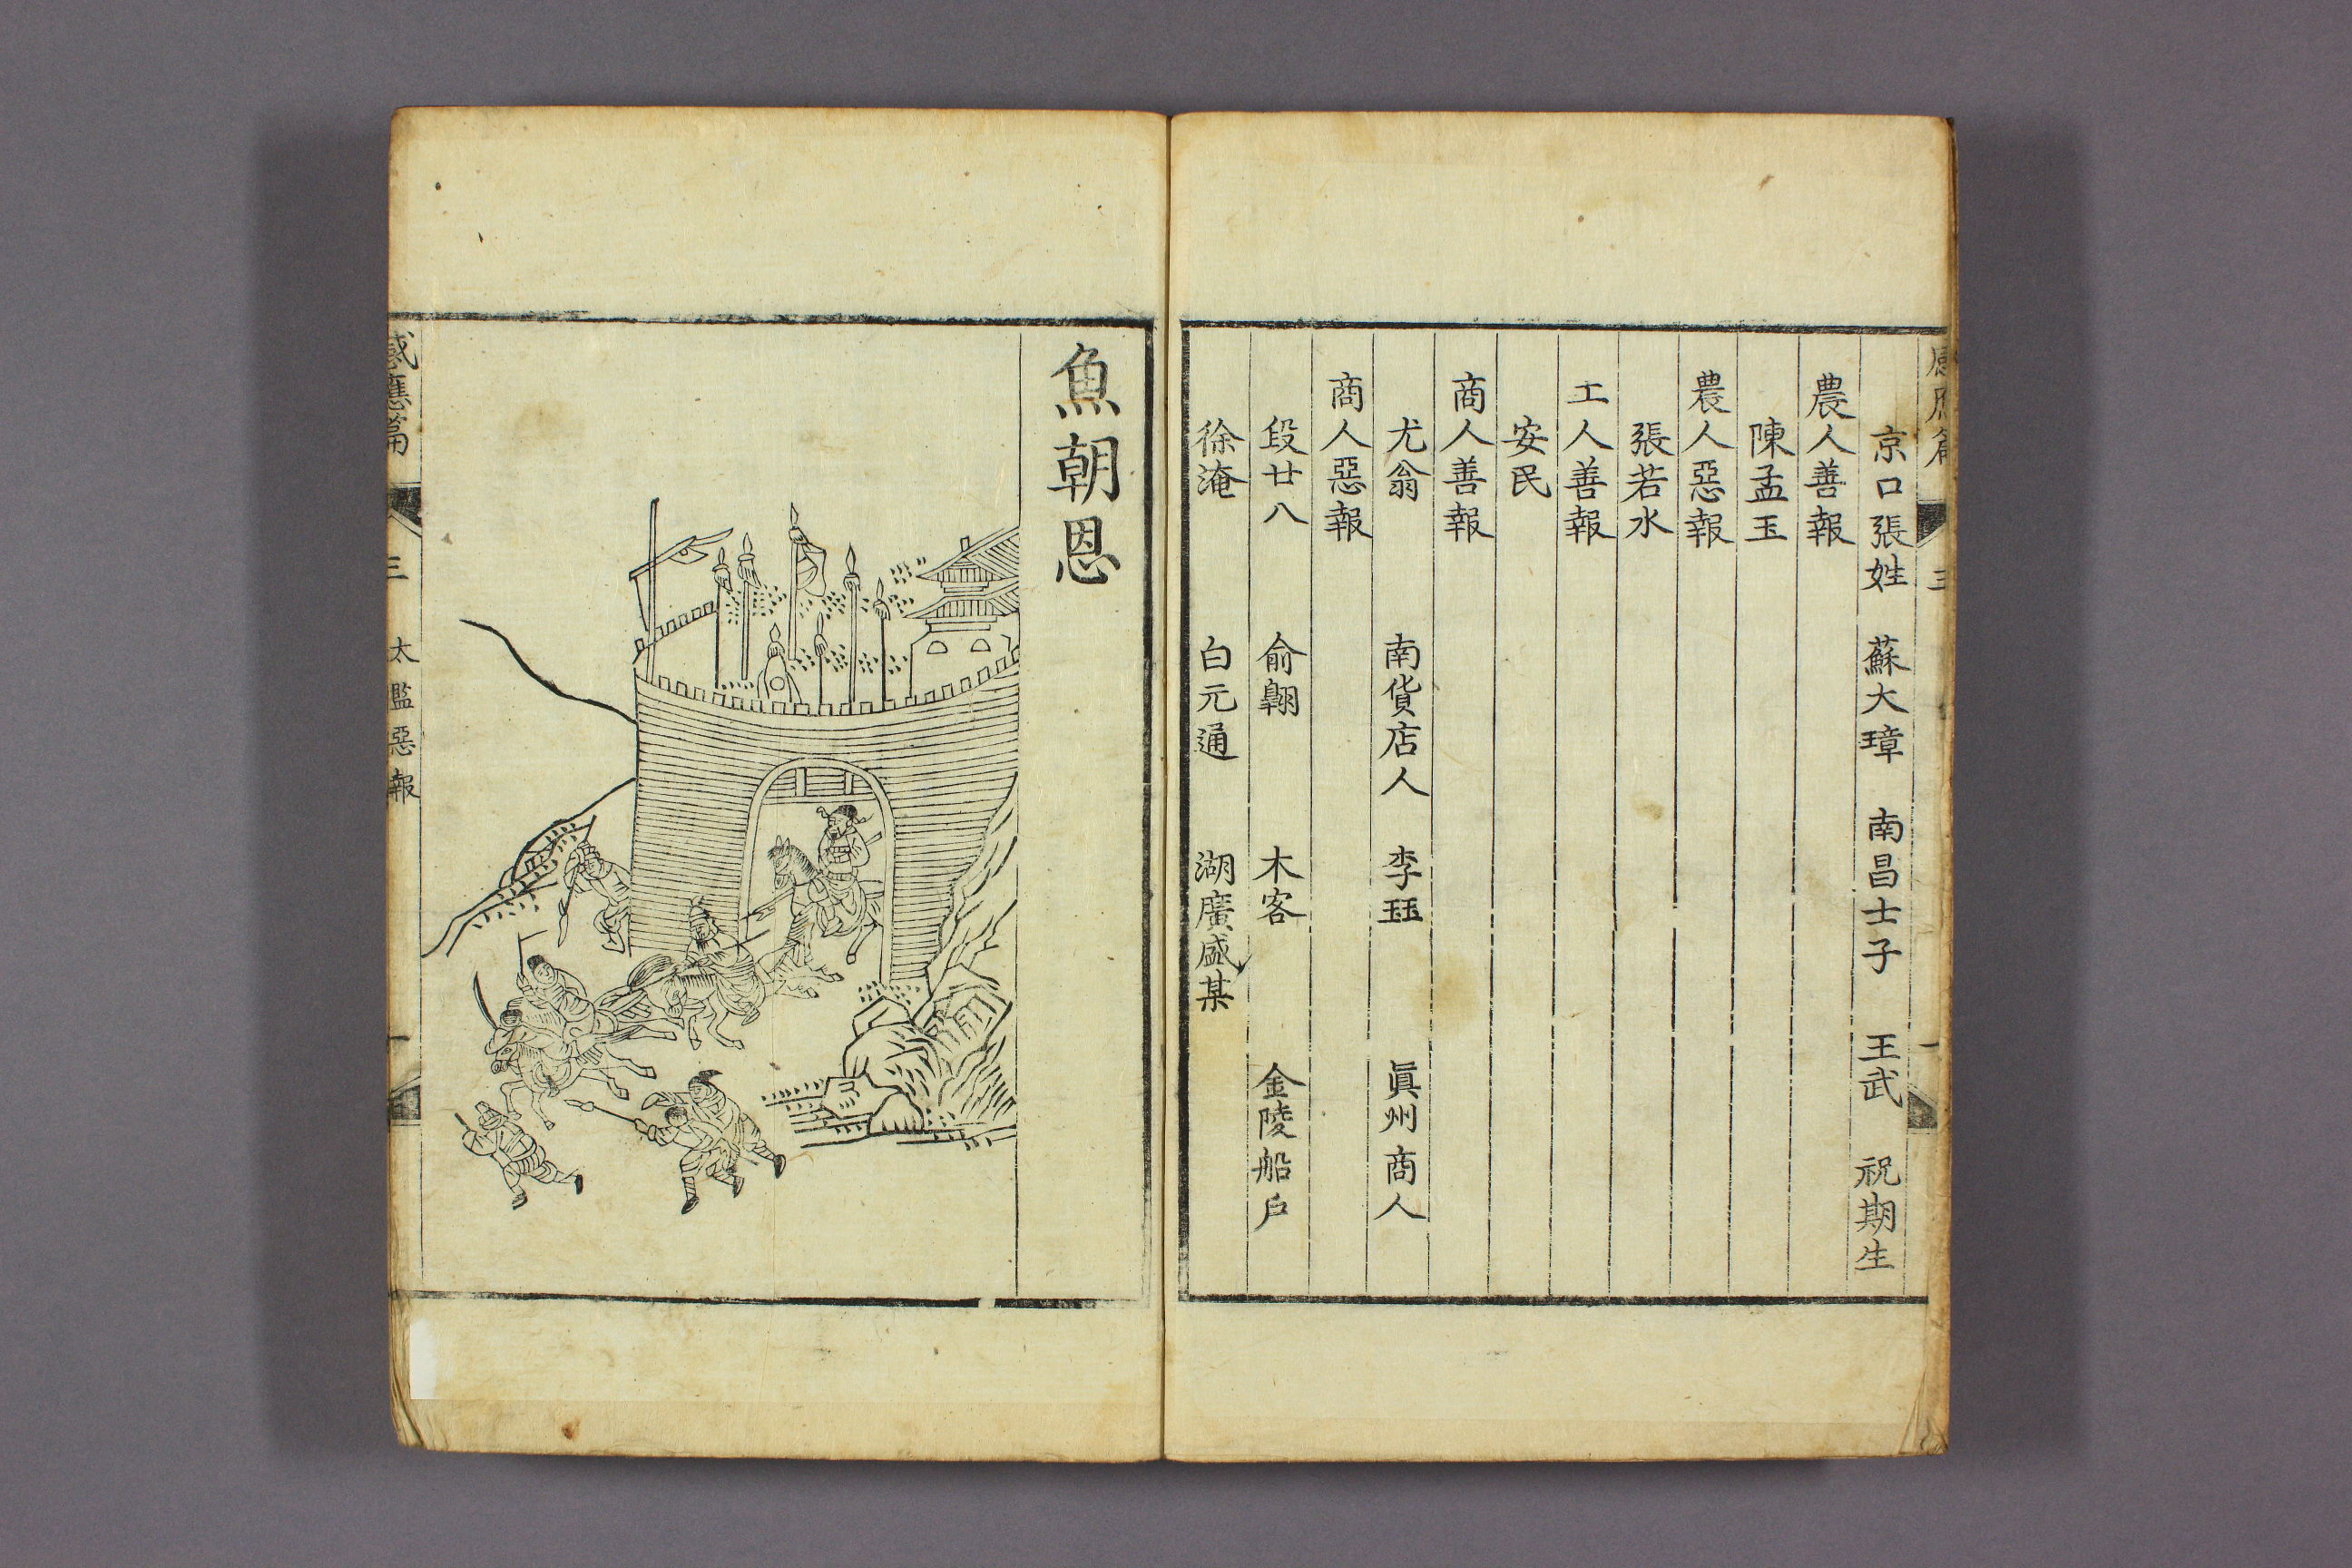 感應篇 三 一
京口張姓 蘇大璋 南昌士子 王武 祝期生
農人善報
陳孟玉
農人惡報
張若水
工人善報
安民
商人善報
尤翁 南貨店人 李珏 眞州商人
商人惡報
段廿八 俞翺 木客 金陵船戶
徐淹 白元通 湖廣盛某
魚朝恩
感應篇 三 太監惡報 一